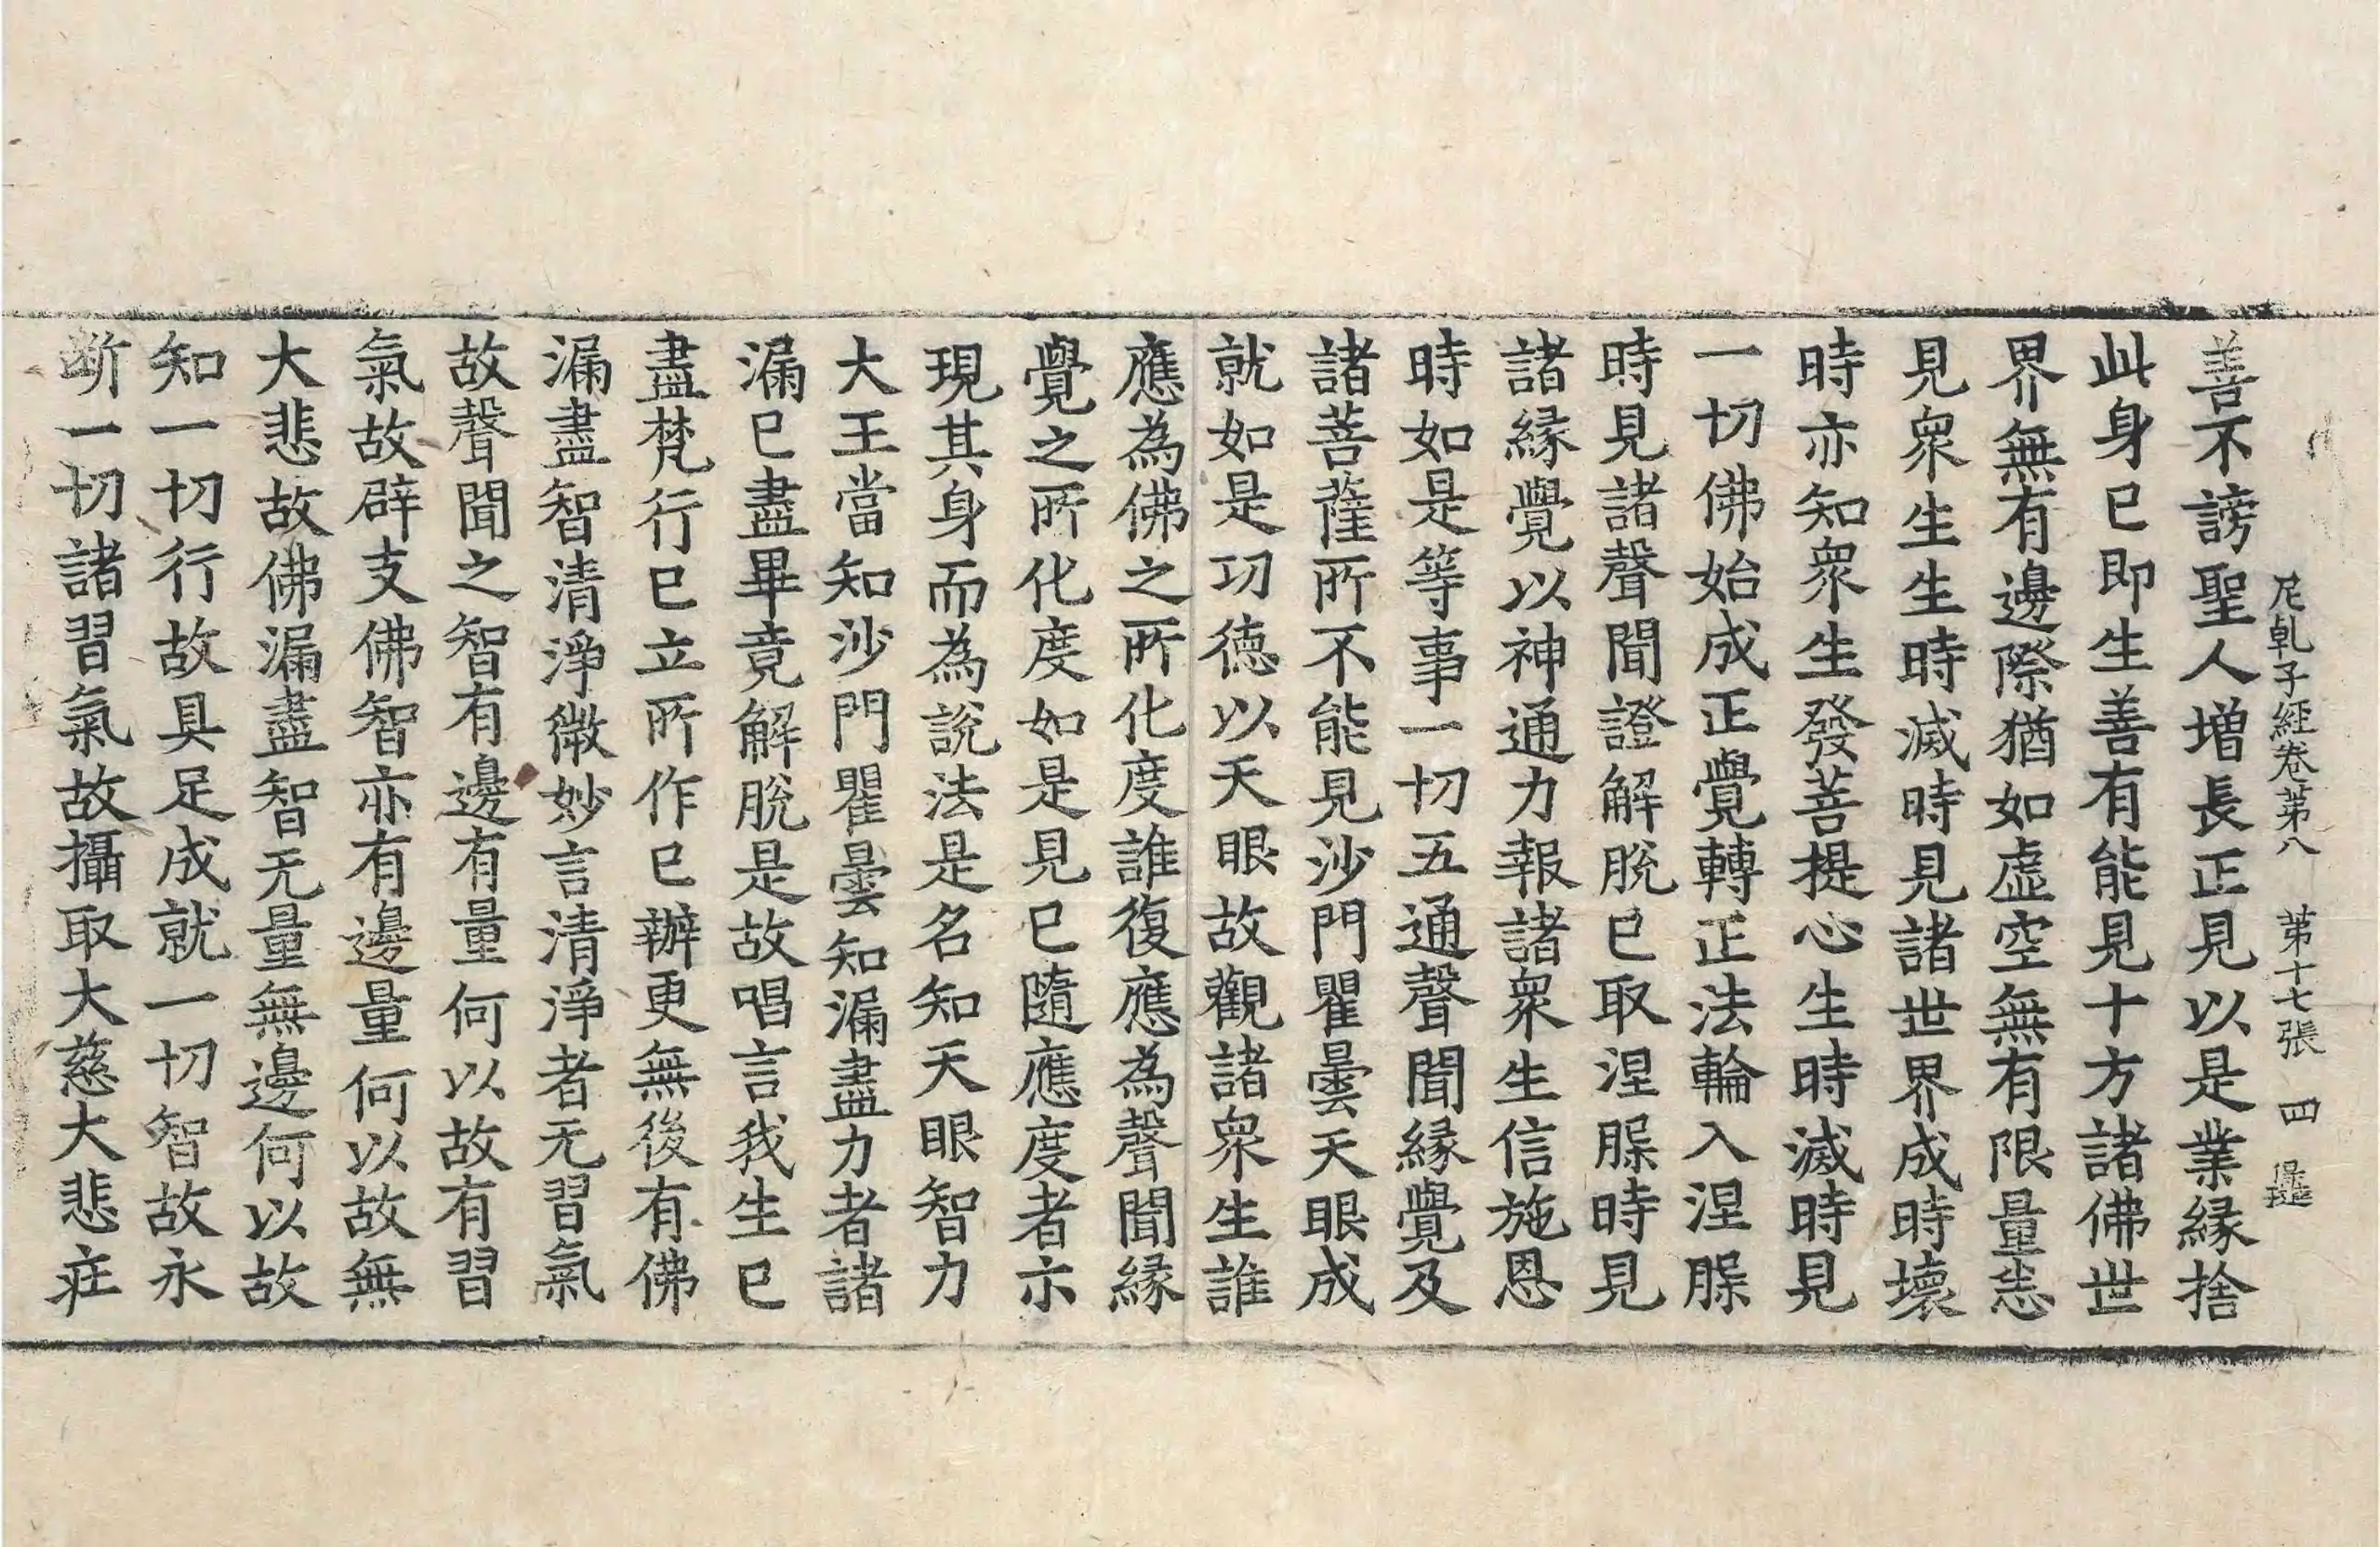 尼乹子經卷第八　第十七張　四
善不謗聖人增長正見以是業緣捨
此身已即生善有能見十方諸佛世
界無有邊際猶如虛空無有限量悉
見衆生生時滅時見諸世界成時壞
時亦知衆生發菩提心生時滅時見
一切佛始成正覺轉正法輪入涅縣
時見諸聲聞證解脫已取涅縣時見
諸緣覺以神通力報諸衆生信施恩
時如是等事一切五通聲聞緣覺及
諸菩薩所不能見沙門瞿曇天眼成
就如是功德以天眼故觀諸衆生誰
應為佛之所化度誰復應為聲聞緣
覺之所化度如是見已隨應度者示
現其身而為說法是名知天眼智力
大王當知沙門瞿曇知漏盡力者諸
漏已盡畢竟解脫是故唱言我生已
盡梵行已立所作已辦更無後有佛
漏盡智清淨微妙言清淨者无習氣
故聲聞之智有邊有量何以故有習
氣故辟支佛智亦有邊量何以故無
大悲故佛漏盡智无量無邊何以故
知一切行故具足成就一切智故永
断一切諸習氣故攝取大慈大悲疘